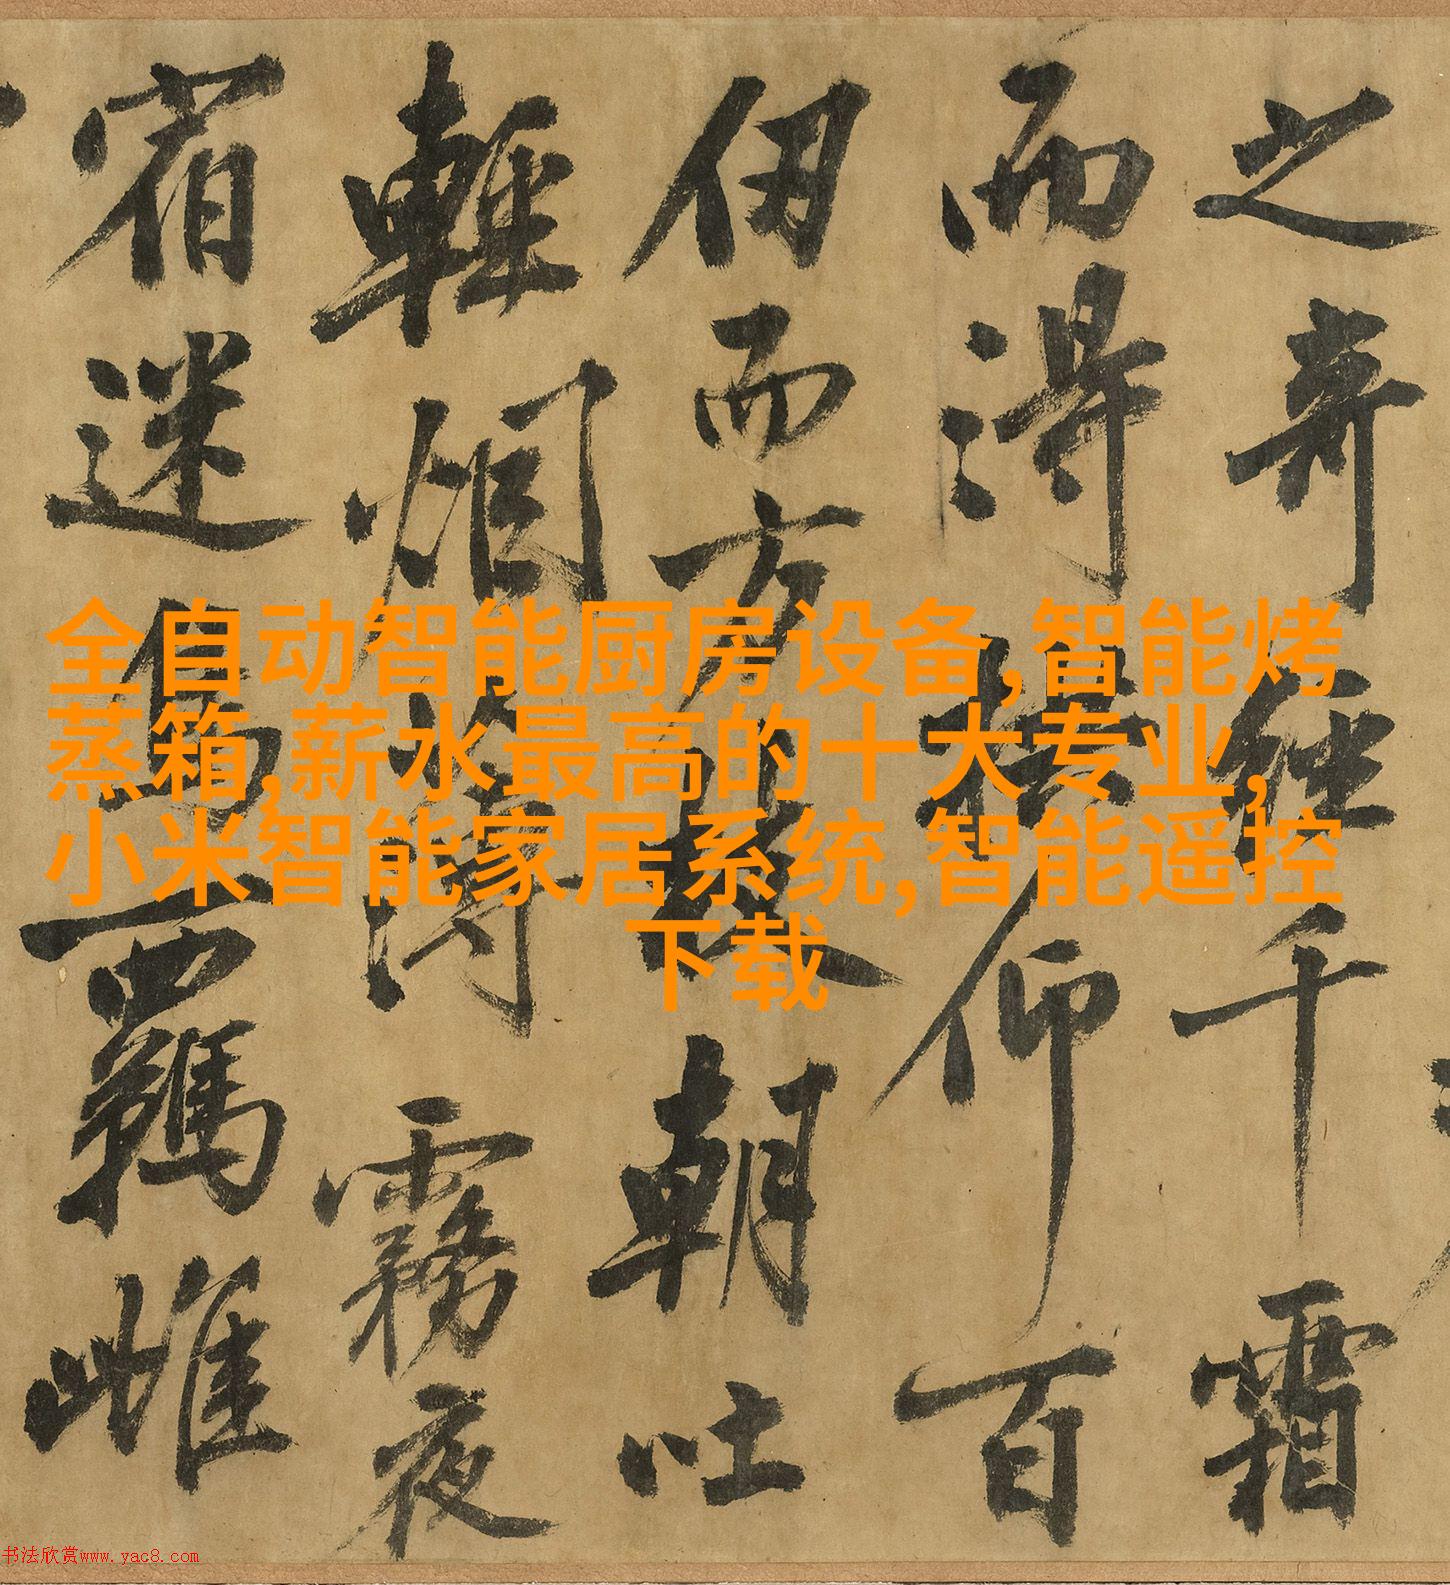 全自动智能厨房设备,智能烤
蒸箱,薪水最高的十大专业,
小米智能家居系统,智能遥控
下载
之奇經千霜
而得仰百
伊而方朝吐
輕烟薄霧夜
宿迷鳥羈雌
书法欣赏www.yac8.com